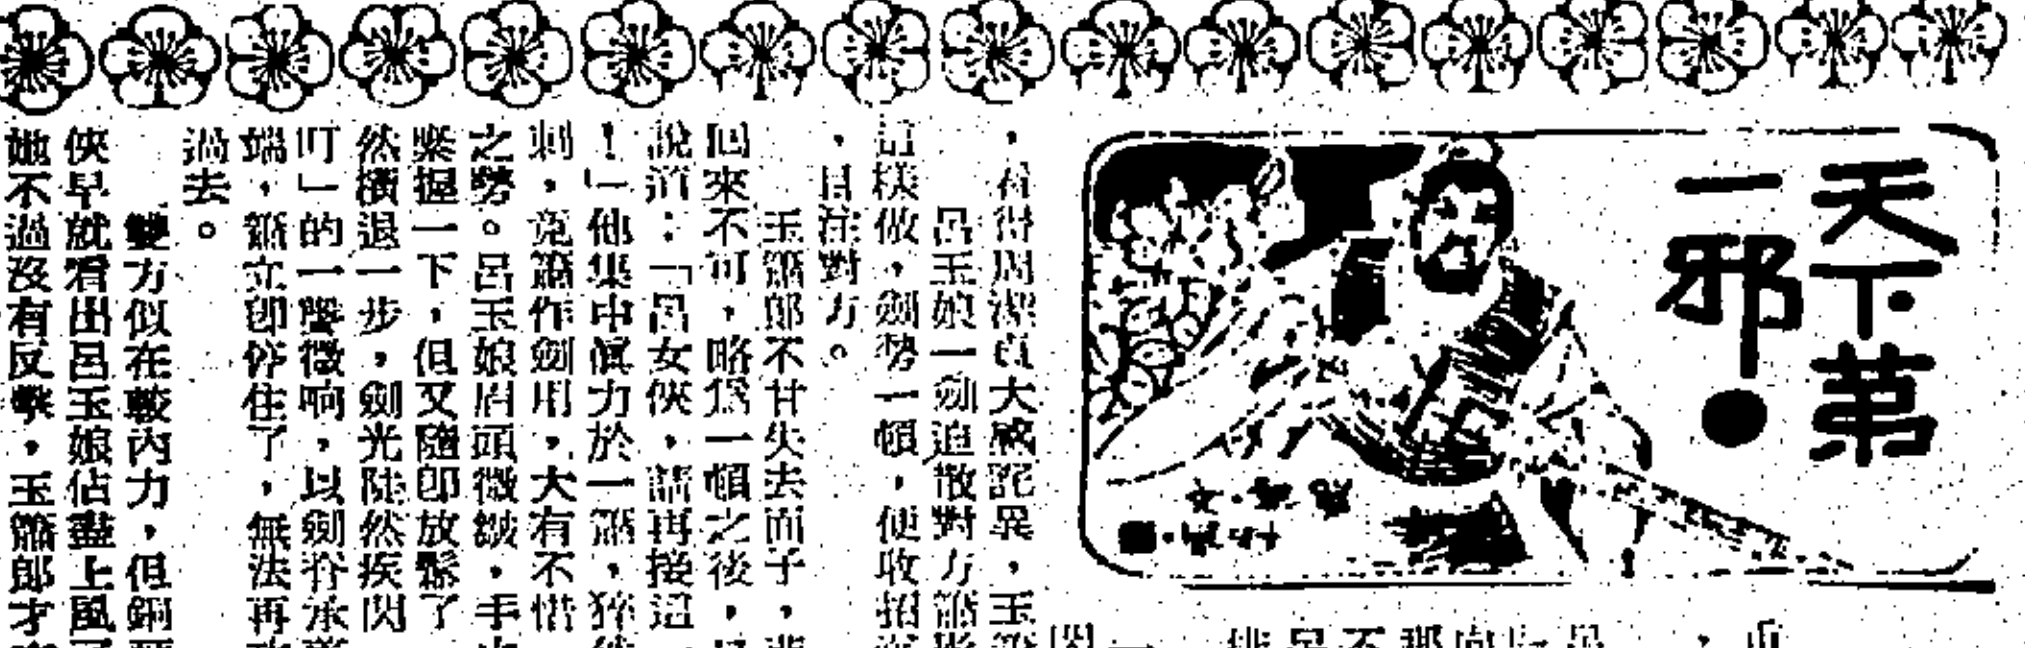 天下第
一邪
，看得周潔貞大感詫異，玉
呂玉娘一劍迫散對方簫
這樣做，劍勢一頓，便收招
，目注對方。
玉簫郎不甘失去面子，
回來不可，略爲一頓之後，
說道：「呂女俠，請再接這
！」他集中眞力於一簫，猝
刺，竟簫作劍用，大有不惜
之勢。呂玉娘眉頭微皺，手
緊握一下，但又隨卽放鬆了
然橫退一步，劍光陡然疾閃
叮」的一聲微响，以劍脊承
端，簫立卽停住了，無法再
過去。
雙方似在較內力，但銅
俠早就看出呂玉娘佔盡上風
她不過沒有反擊，玉簫郎才